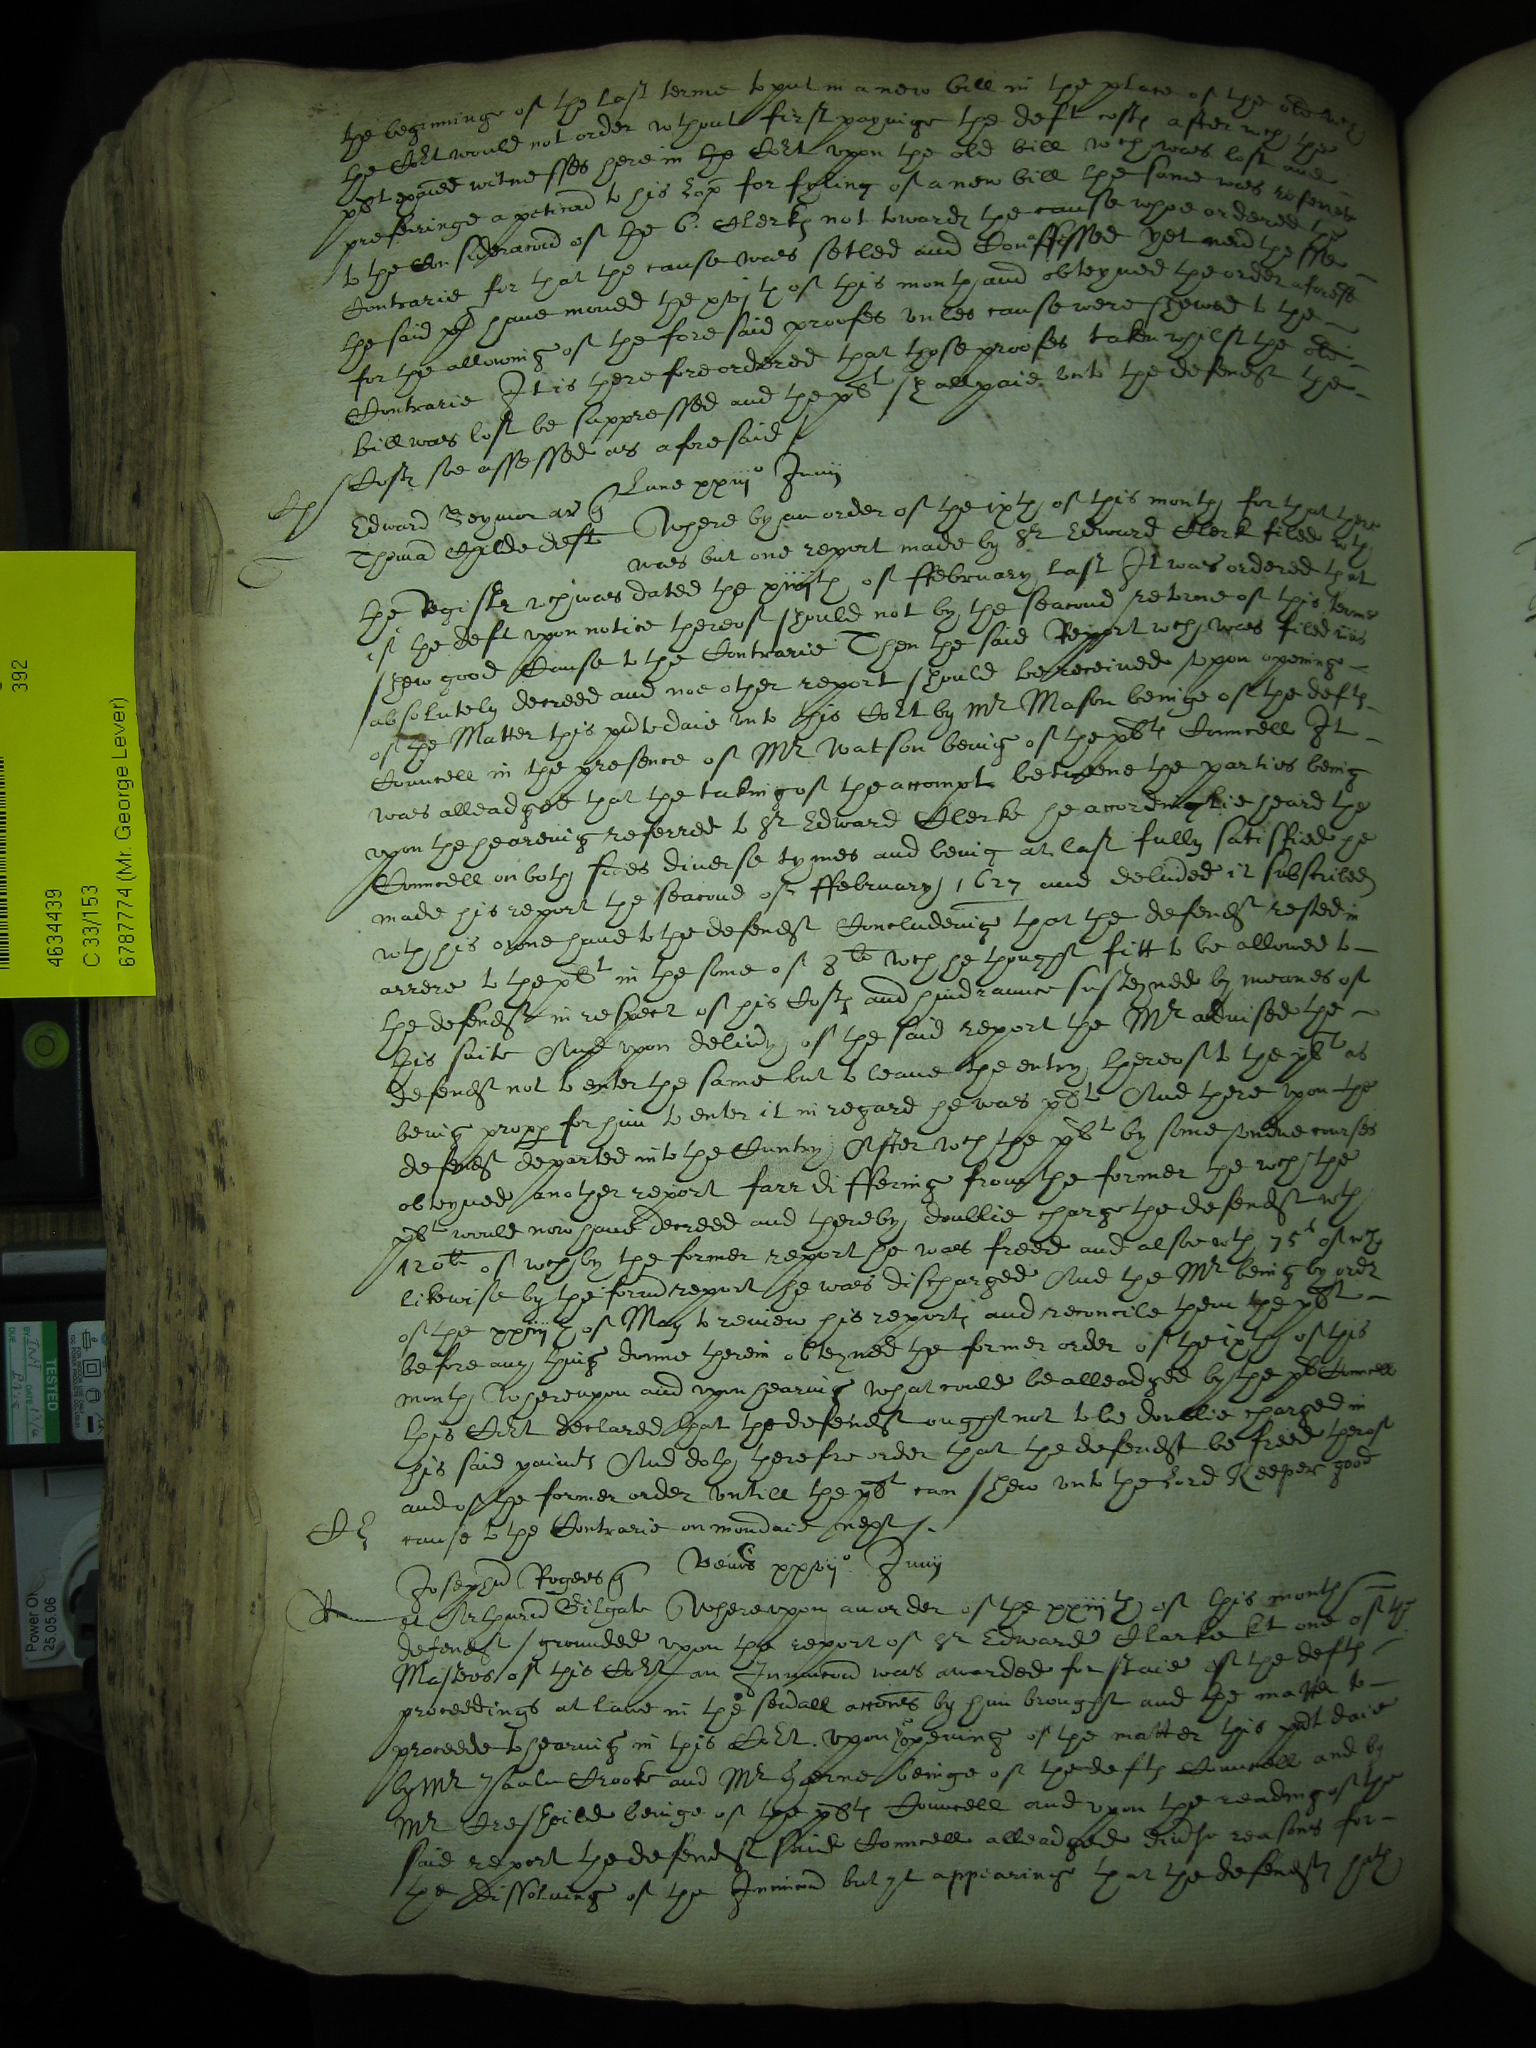 the beginninge of the last terme to put in a new bill in the place of the old wch
the Cort would not order wthout first payinge the deft costs after wch the
plt exaied witnesses here in the Cort upon the old bill wch was lost and
preferringe a peticon to his Lop for fyling of a new bill the same was referred
to the Consideracon of the 6. Clerks not towards the cause whoe ordered the
Contrarie for that the cause was setled and yet nowe these
the said plt have moved the xvjth of this month and obteyned the order aforesd
for the allowing of the foresaid proofes unles cause were shewed to the
Contrarie It is therefore ordered that those proofes taken whilst the old
bill was lost be suppressed and the plt shall paie unto the defendt the
Costs soe assessed as aforesaid
Lune xxiijo Junij
Edward Seymor ar q
Thomas Childe deft Where by an order of the ixth of this month for that there
was but one report made by Sr Edward Clerk filed wth
the Register wch was dated the xiiijth of ffebruary last It was ordered that
if the deft upon notice thereof should not by the second retorne of this terme
shew good Cause to the Contrarie Then the said Report wch was filed was
absolutely decreed and noe other report should be received upon openinge
of the Matter this pnte daie unto this Cort by mr Mason beinge of the defts
Councell in the presence of Mr Watson being of the plts Councell It
was alleadged that the taking of the accompt betweene the parties being
upon the heareing referred to Sr Edward Clerke he accordinglie heard the
Councell on both sides diverse tymes and being at last fully satisfied he
made his report the second of ffebruary 1627 and delived it subscribed
wth his owne hand to the defendt Concludeing that the defendt rested in
arrere to the plt in the some of 8li wch he thought fitt to be allowed to
the defendt in respect of his Costs and hindraunce susteyned by meanes of
this suite And upon delivy of the said report the Mr advised the
defendt not to enter the same but to leave the entry thereof to the plt as
being propp for him to enter it in regard he was plt And there upon the
defendt departed into the Cuntry After wch the plt by some undue courses
obteyned another report farr differing from the former the wch the
plt would now have decreed and thereby doublie charge the defendt wth
120li of wch by the former report he was freed and alsoe wth 75l of wch
likewise by the formr report he was discharged And the Mr being by ordr
of the xxiijth of May to review his reports and reconcile them the plt
before any thing donne therein obteyned the former order of the ixth of this
month Whereupon and upon hearing what could be alleadged by the plts Councell
this Cort declared that the defendt ought not to be doublie charged in
his said paimts And doth therefore order that the defendt be freed therof
and of the former order untill the plt can shew unto the Lord Keeper good
cause to the Contrarie on mondaie next
Joseph Rogers q Venris xxvijo Junij
et Arthurus Gilgate Whereupon an order of the xxiiijth of this month
defendt grounded upon the report of Sr Edward Clarke kt one of the
Masters of this Cort an Iniuncon was awarded for staie of the defts
proceedings at lawe in the sevall accons by him brought and the matter to
proceede to hearing in this Cort. Upon opening of the matter this pnt daie
by Mr Crooke and Mr Herne beinge of the defts Councell and by
Mr Cresheild beinge of the plts Councell and upon the reading of the
said report the defendt said Councell alleadged divse reasons for
the dissolving of the Iniuncon but yt appearinge that the defendt hath
392
4634439
C 33/153
6787774 (Mr. George Lever)
TESTED
Power On
25.05.06